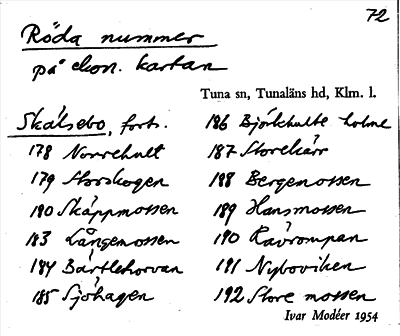 72
Röda nummer
på ekon. kartan
Tuna sn, Tunaläns hd, Klm. l.
Skälsebo, forts.
178 Norrehult
179 Storskogen
180 Skäppmossen
183 Långemossen
184 Bärtlehorvan
185 Sjöhagen
186 Björkhulte holme
187 Storekärr
188 Bergemossen
189 Hansmossen
190 Rävrompan
191 Nyboviken
192 Store mossen
Ivar Modéer 1954